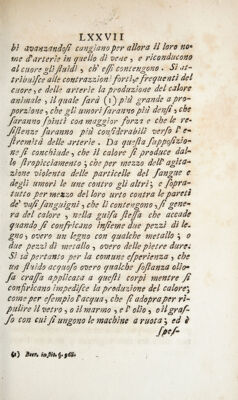 LXXVII
bi avanzandosi cangiano per allora il loro no-
me d'arterie in quello di vene, e riconducono
al cuore gli fluidi, ch' essi contengono. Si at-
tribuisce alle contrazzioni forti, e frequenti del
cuore, e delle arterie la produzione del calore
animale, il quale sarà (1) più grande a pro-
porzione, che gli umori saranno più densi, che
saranno spinti con maggior forza e che le re-
sistenze saranno più considerabili verso l' e-
stremità delle arterie. Da questa supposizio-
ne si conchiude, che il calore si produce dal-
lo stropicciamento; che per mezzo dell' agita-
zione violenta delle particelle del sangue e
degli umori le une contro gli altri; e sopra-
tutto per mezzo del loro urto contro le pareti
de' vasi sanguigni, che li contengono, si gene-
ra del calore, nella guisa stessa che accade
quando si confricano insieme due pezzi di le-
gno, overo un legno con qualche metallo; o
due pezzi di metallo, overo delle pietre dure.
Si sà pertanto per la comune esperienza, che
un fluido acquoso overo qualche sostanza olio-
sa crassa applicata a questi corpi mentre si
confricano impedisce la produzione del calore;
come per esempio l'acqua, che si adopra per ri-
pulire il vetro, o il marmo, e l' olio, o il gras-
so con cui si ungono le machine a ruota; ed è
spes-
(1) Boer. instit. §. 968.